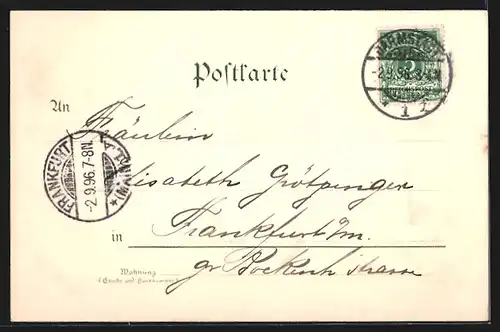 DARMSTADT
-2.9.96.3-4N.
1
5
Postkarte
An
Fräulein
FRANKFURT (MAIN)
-2.9.96.7-8N.
Elisabeth Grötzinger
in Frankfurt a/m.
gr Bockenh strasse
Wohnung
(Strasse und Hausnummer)